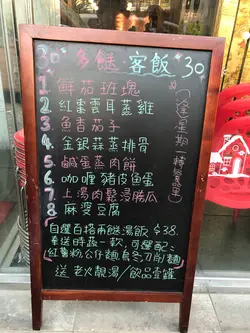 30 多餸客飯 30
1. 鮮茄班塊
2. 紅棗雲耳蒸雞
3. 魚香茄子
4. 金銀蒜蒸排骨
5. 鹹蛋蒸肉餅
6. 咖喱豬皮魚蛋
7. 上湯肉鬆浸勝瓜
8. 麻婆豆腐
自選百搭兩餸湯飯 $38.
奉送時蔬一款,可選配:
紅薯粉公仔麵烏冬刀削麵
送老火靚湯/飲品壹罐